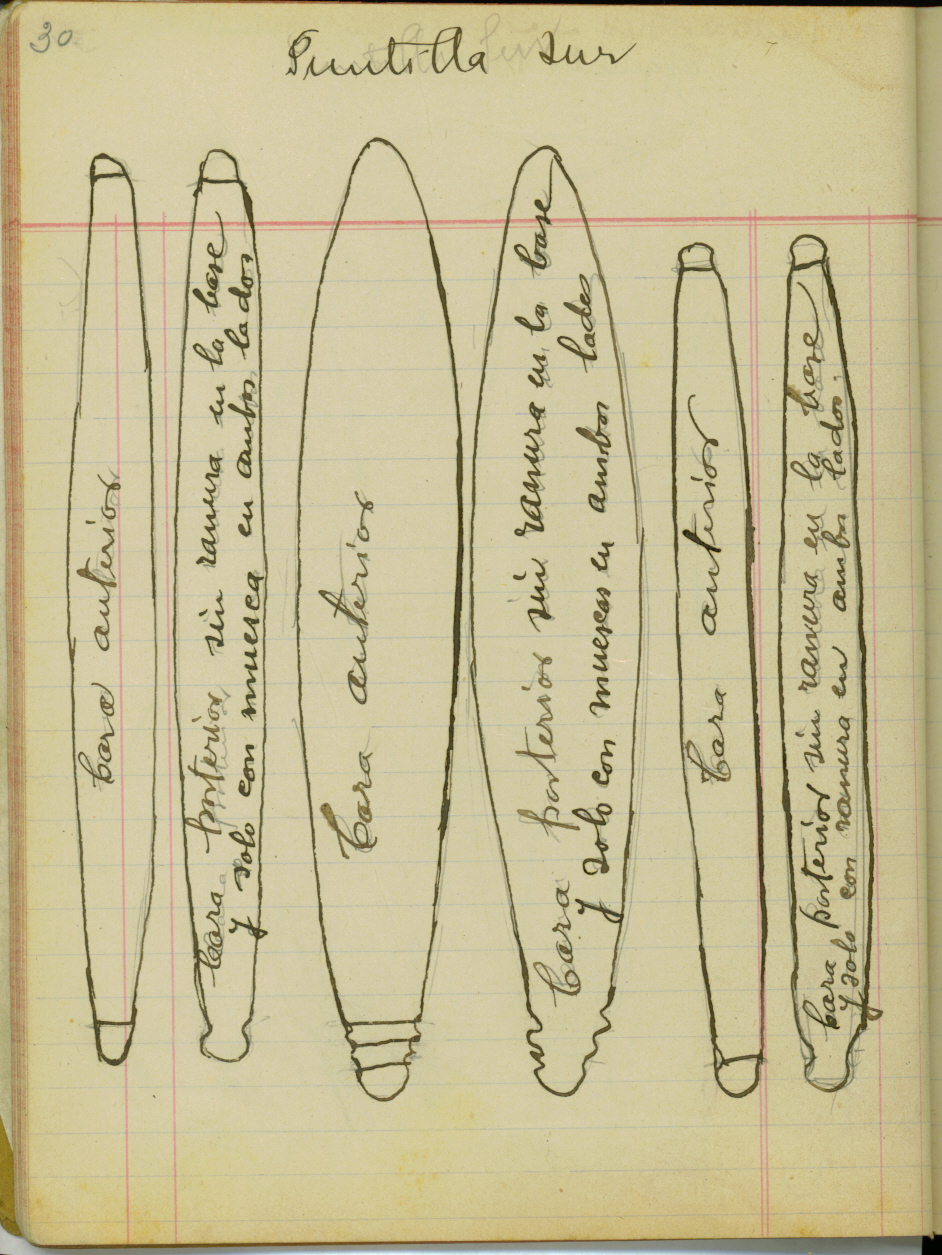 30
Puntilla sur
Cara anterior
Cara posterior sin ranura en la base
y solo con muesca en ambos lados
Cara anterior
Cara posterior sin ranura en la base
y solo con muescas en ambos lados
Cara anterior
Cara posterior sin ranura en la base
y solo con ranura en ambos lados.